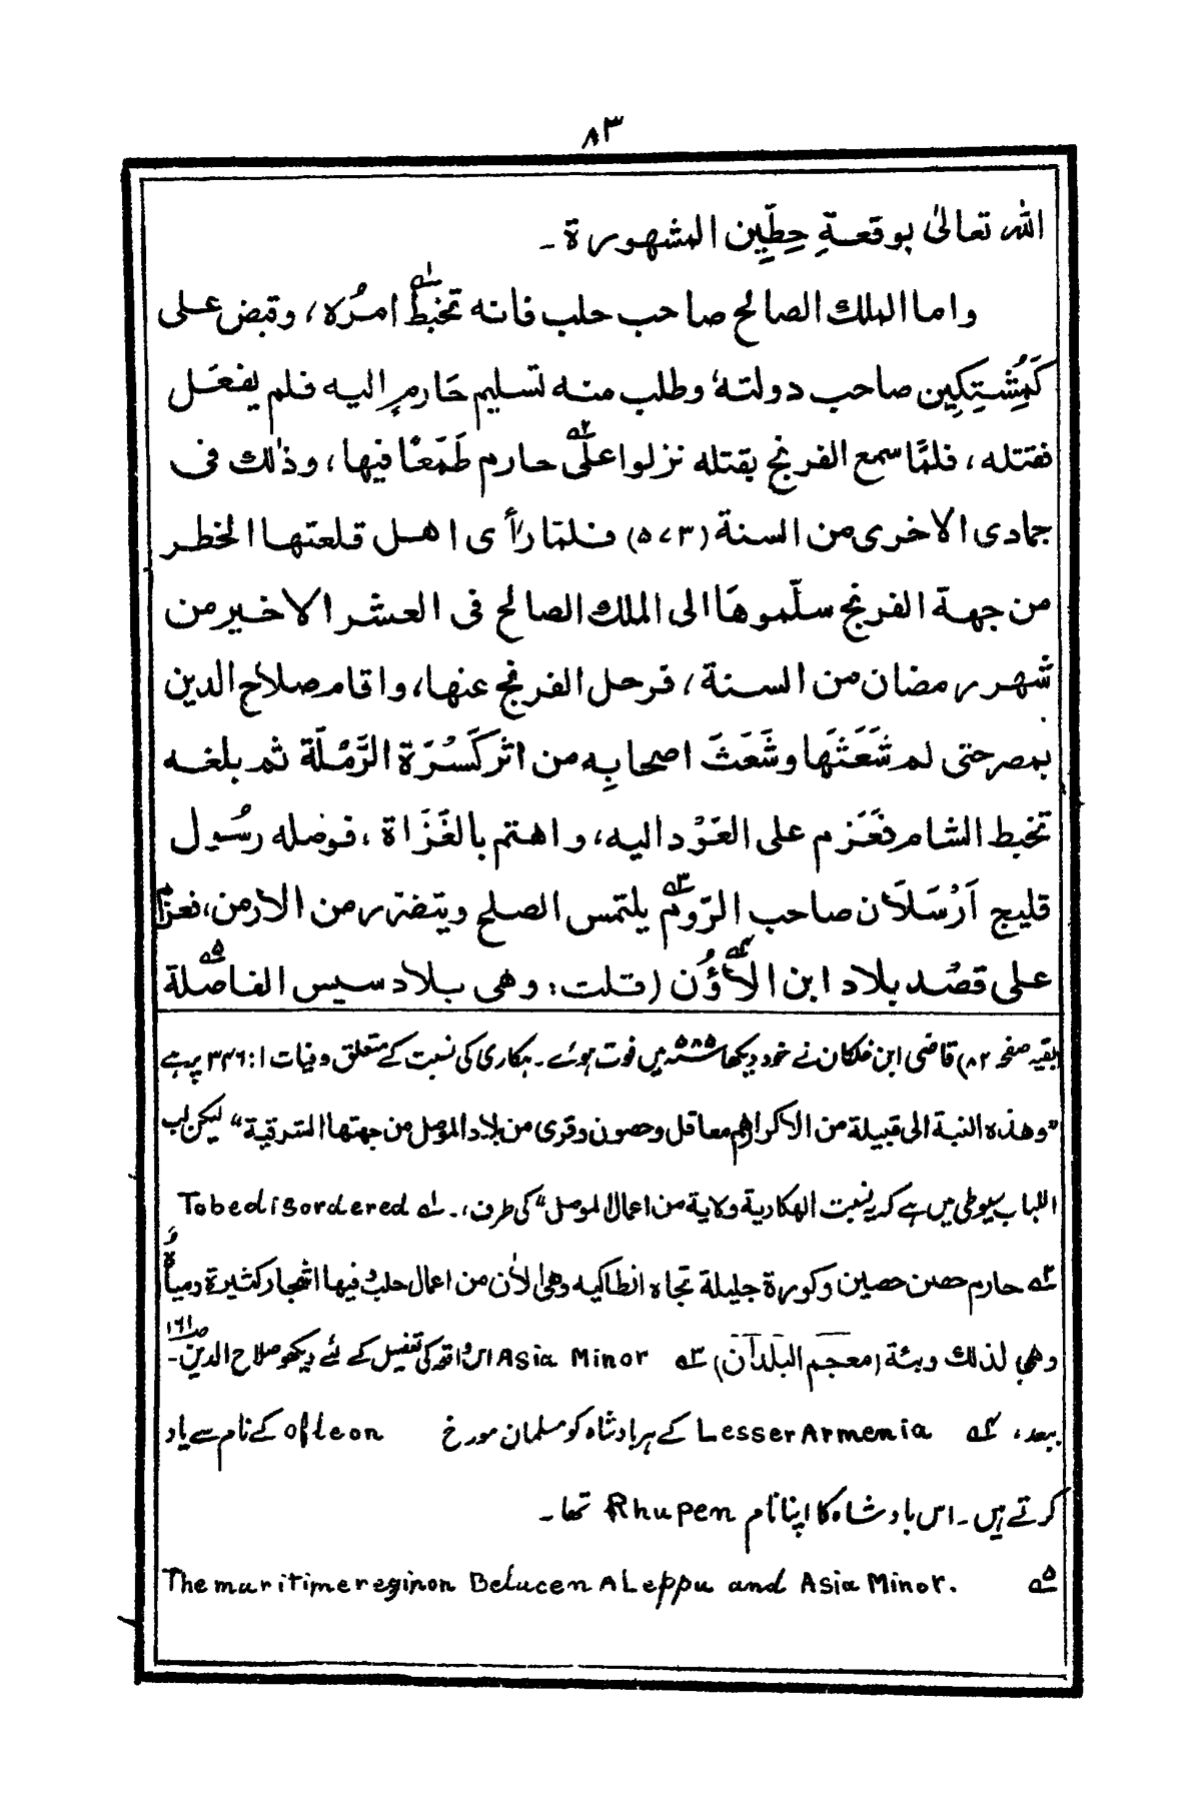 ۸۳
الله تعالىٰ بوقعةِ حِطِّين المشهورة ـ
واما الملك الصالح صاحب حلب فانه تخبط ۱ امرُه، وقبض على
كَمُشتِكِين صاحب دولته، وطلب منه تسليم حَارمٍ اليه فلم يفعَل
فقتله، فلمّا سمع الفرنج بقتله نزلوا على ۲ حارم طَمَعًا فيها، وذٰلك فى
جمادى الاخرى من السنة (۵۷۳) فلمّا رأى اهل قلعتها الخطر
من جهة الفرنج سلّموهَا الى الملك الصالح فى العشر الاخير من
شهر رمضان من السنة، فرحل الفرنج عنها، واقام صلاح الدين
بمصر حتى لم شَعَثَها وشَعَثَ اصحابِه من اثر كَسْرَة الرَّمْلَة ثم بلغه
تخبط الشام فعَزم على العَوْد اليه، واهتم بالغَزَاة، فوصله رسُول
قليج اَرْسَلَان صاحب الرّوم ۳ يلتمس الصلح ويتضرر من الارمن، فعزم
على قصْد بلاد ابن لاؤُن ۴ (قلت: وهى بلاد سيس الفاصلة ۵
بقیہ صفحہ ۸۲) قاضی ابن خلکان نے خود دیکھا ۵۸۵ھ میں فوت ہوئے۔ ہکاری کی نسبت کے متعلق وفیات ۱: ۳۴۶ پر ہے
"وهذه النسبة الى قبيلة من الاكراد لهم معاقل وحصون وقرى من بلاد الموصل من جهتها الشرقية" لیکن لب
اللباب سیوطی میں ہے کہ یہ نسبت الهكارية ولاية من اعمال الموصل" کی طرف، ۔ ۱ To be disordered
۲ حارم حصن حصين وكورة جليلة تجاه انطاكيه وهى الآن من اعمال حلب وفيها اشجار كثيرة ومياهٌ
وهى لذلك وبئة (معجم البلدان) ۳ Asia Minor اس واقعہ کی تفصیل کے لئے دیکھو صلاح الدین ص ۱۶۱ ۔
ببعد، ۴ Lesser Armenia کے ہر بادشاہ کو مسلمان مورخ of leon کے نام سے یاد
کرتے ہیں۔ اس بادشاہ کا اپنا نام Rhupen تھا۔
۵ The maritime reginon Belucen ALeppu and Asia Minor.